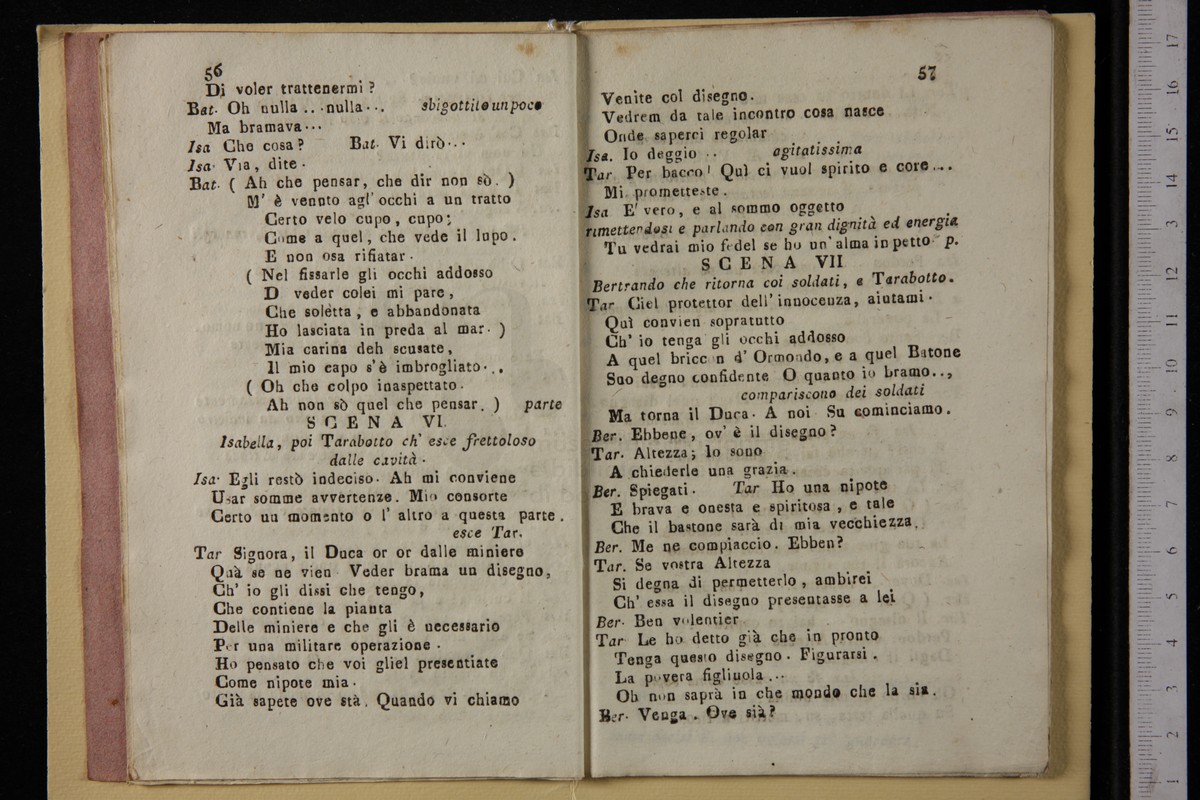 56
Di voler trattenermi ?
Bat. Oh nulla .. . nulla . .. sbigottito un poco
Ma bramava . ..
Isa Che cosa ? Bat. Vi dirò . ..
Isa. Via , dite .
Bat. ( Ah che pensar, che dir non sò. )
M' è vennto agl' occhi a un tratto
Certo velo cupo , cupo ;
Come a quel, che vede il lupo .
E non osa rifiatar .
( Nel fissarle gli occhi addosso
D veder colei mi pare ,
Che solètta , e abbandonata
Ho lasciata in preda al mar. )
Mia carina deh scusate ,
Il mio capo s'è imbrogliato . . ,
( Oh che colpo inaspettato .
Ah non sò quel che pensar. ) parte
SCENA VI.
Isabella, poi Tarabotto ch' esce frettoloso
dalle cavità .
Isa. Egli restò indeciso. Ah mi conviene
Usar somme avvertenze. Mio consorte
Certo un momento o l' altro a questa parte .
esce Tar.
Tar Signora, il Duca or or dalle miniere
Quà se ne vien Veder brama un disegno,
Ch' io gli dissi che tengo,
Che contiene la pianta
Delle miniere e che gli è necessario
Per una militare operazione .
Ho pensato che voi gliel presentiate
Come nipote mia .
Già sapete ove stà. Quando vi chiamo
57
Venite col disegno.
Vedrem da tale incontro cosa nasce
Onde saperci regolar
Isa. Io deggio .. agitatissima
Tar Per bacco! Quì ci vuol spirito e core ...
Mi prometteste .
Isa E' vero, e al sommo oggetto
rimettendosi e parlando con gran dignità ed energia
Tu vedrai mio fedel se ho un' alma in petto p.
SCENA VII
Bertrando che ritorna coi soldati, e Tarabotto.
Tar Ciel protettor dell' innocenza, aiutami .
Quì convien sopratutto
Ch' io tenga gli occhi addosso
A quel briccon d' Ormondo, e a quel Batone
Suo degno confidente O quanto io bramo . . ,
compariscono dei soldati
Ma torna il Duca. A noi Su cominciamo.
Ber. Ebbene, ov' è il disegno ?
Tar. Altezza ; Io sono
A chiederle una grazia .
Ber. Spiegati . Tar Ho una nipote
E brava e onesta e spiritosa , e tale
Che il bastone sarà di mia vecchiezza.
Ber. Me ne compiaccio. Ebben?
Tar. Se vostra Altezza
Si degna di permetterlo , ambirei
Ch' essa il disegno presentasse a lei
Ber. Ben volentier
Tar Le ho detto già che in pronto
Tenga questo disegno . Figurarsi .
La povera figliuola . ..
Oh non saprà in che mondo che la sia.
Ber. Venga . Ove sià ?